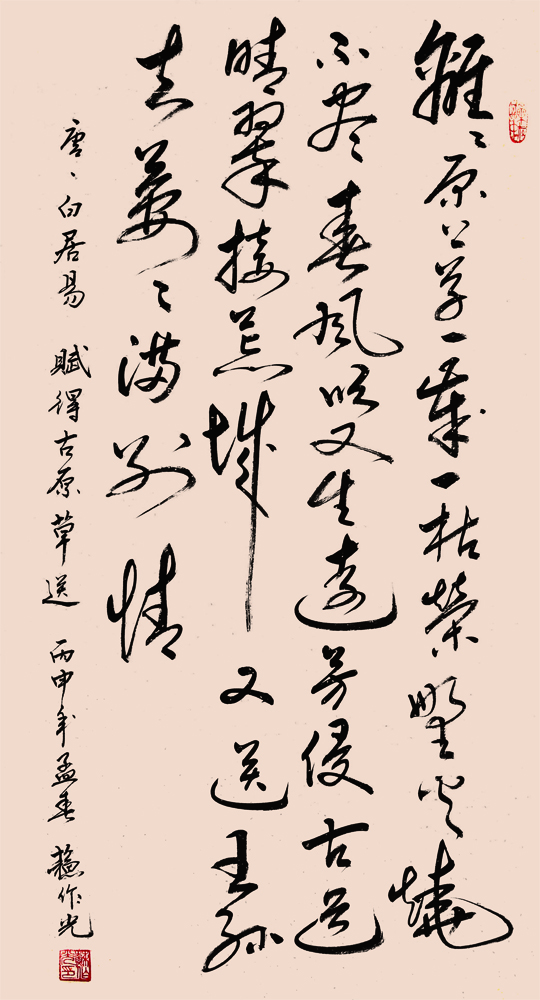 離〻原上草一歲一枯榮野火燒
不尽春風吹又生遠芳侵古道
晴翠接荒城又送王孫
去萋〻滿別情
唐、白居易 賦得古原草送 丙申年孟春 作光